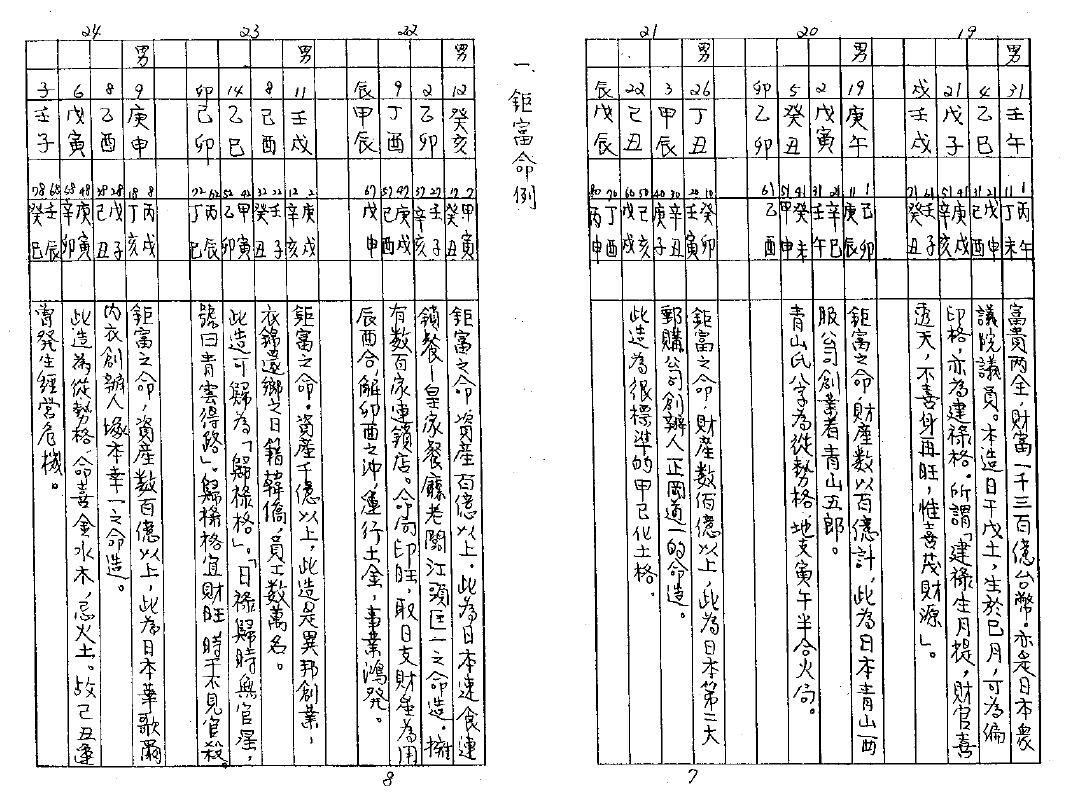 19
男
31 壬午
4 乙巳
21 戊子
戌 壬戌
1 丙午
11 丁未
21 戊申
31 己酉
41 庚戌
51 辛亥
61 壬子
71 癸丑
富貴兩全,財富一千三百億台幣。亦是日本眾
議院議員。本造日干戊土,生於巳月,可為偏
印格,亦為建祿格。所謂「建祿生月提,財官喜
透天,不喜身再旺,惟喜茂財源」。
20
男
19 庚午
2 戊寅
5 癸丑
卯 乙卯
1 己卯
11 庚辰
21 辛巳
31 壬午
41 癸未
51 甲申
61 乙酉
鉅富之命,財產數以百億計,此為日本青山西
服公司創業者青山五郎。
青山氏八字為從勢格,地支寅午半合火局。
21
男
26 丁丑
3 甲辰
22 己丑
辰 戊辰
10 癸卯
20 壬寅
30 辛丑
40 庚子
50 己亥
60 戊戌
70 丁酉
80 丙申
鉅富之命,財產數佰億以上,此為日本第二大
郵購公司創辦人正岡道一的命造。
此造為很標準的甲己化土格。
7
一、鉅富命例
22
男
12 癸亥
2 乙卯
9 丁酉
辰 甲辰
7 甲寅
17 癸丑
27 壬子
37 辛亥
47 庚戌
57 己酉
67 戊申
鉅富之命,資產百億以上。此為日本速食連
鎖餐—皇家餐廳老闆江頭匡一之命造,擁
有數百家連鎖店。命局印旺,取日支財星為用
辰酉合,解卯酉之沖,運行土金,事業鴻發。
23
男
11 壬戌
8 己酉
14 乙巳
卯 己卯
2 庚戌
12 辛亥
22 壬子
32 癸丑
42 甲寅
52 乙卯
62 丙辰
72 丁巳
鉅富之命。資產千億以上,此造是異邦創業,
衣錦還鄉之日籍韓僑,員工數萬名。
此造可歸為「歸祿格」。「日祿歸時無官星,
號曰青雲得路」。歸祿格宜財旺,時干不見官殺
24
男
9 庚申
8 乙酉
6 戊寅
子 壬子
8 丙戌
18 丁亥
28 戊子
38 己丑
48 庚寅
58 辛卯
68 壬辰
78 癸巳
鉅富之命,資產數百億以上,此為日本華歌爾
內衣創辦人塚本幸一之命造。
此造為從勢格,命喜金水木,忌火土。故己丑運
曾發生經營危機。
8